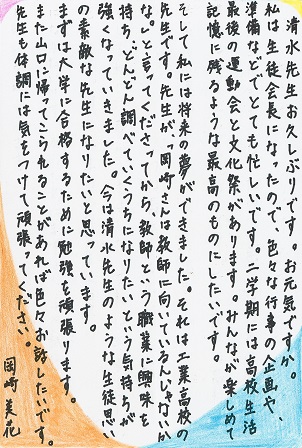 清水先生お久しぶりです。お元気ですか。
私は生徒会長になったので、色々な行事の企画や、
準備などでとても忙しいです。二学期には高校生活
最後の運動会と文化祭があります。みんなが楽しめて
記憶に残るような最高のものにしたいです。
そして私には将来の夢ができました。それは工業高校の
先生です。先生が、「岡崎さんは教師に向いているんじゃないか
な。」と言ってくださってから教師という職業に興味を
持ち、どんどん調べていくうちになりたいという気持ちが
強くなっていきました。今は清水先生のような生徒思い
の素敵な先生になりたいと思っています。
まずは大学に合格するために勉強を頑張ります。
また山口に帰ってこられることがあれば色々お話したいです。
先生も体調には気をつけて頑張ってください。
岡崎 美花